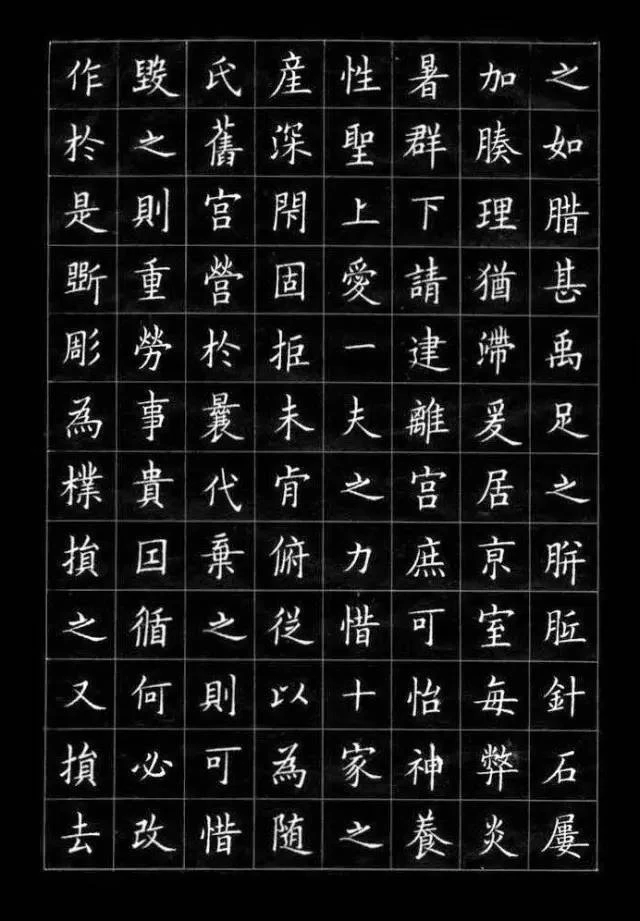 之如腊甚禹足之胼胝針石屢
加腠理猶滯爰居京室每弊炎
暑群下請建離宫庶可怡神養
性聖上愛一夫之力惜十家之
産深閇固拒未肯俯從以為随
氏舊宫營於曩代棄之則可惜
毀之則重勞事貴因循何必改
作於是斲彫為樸損之又損去